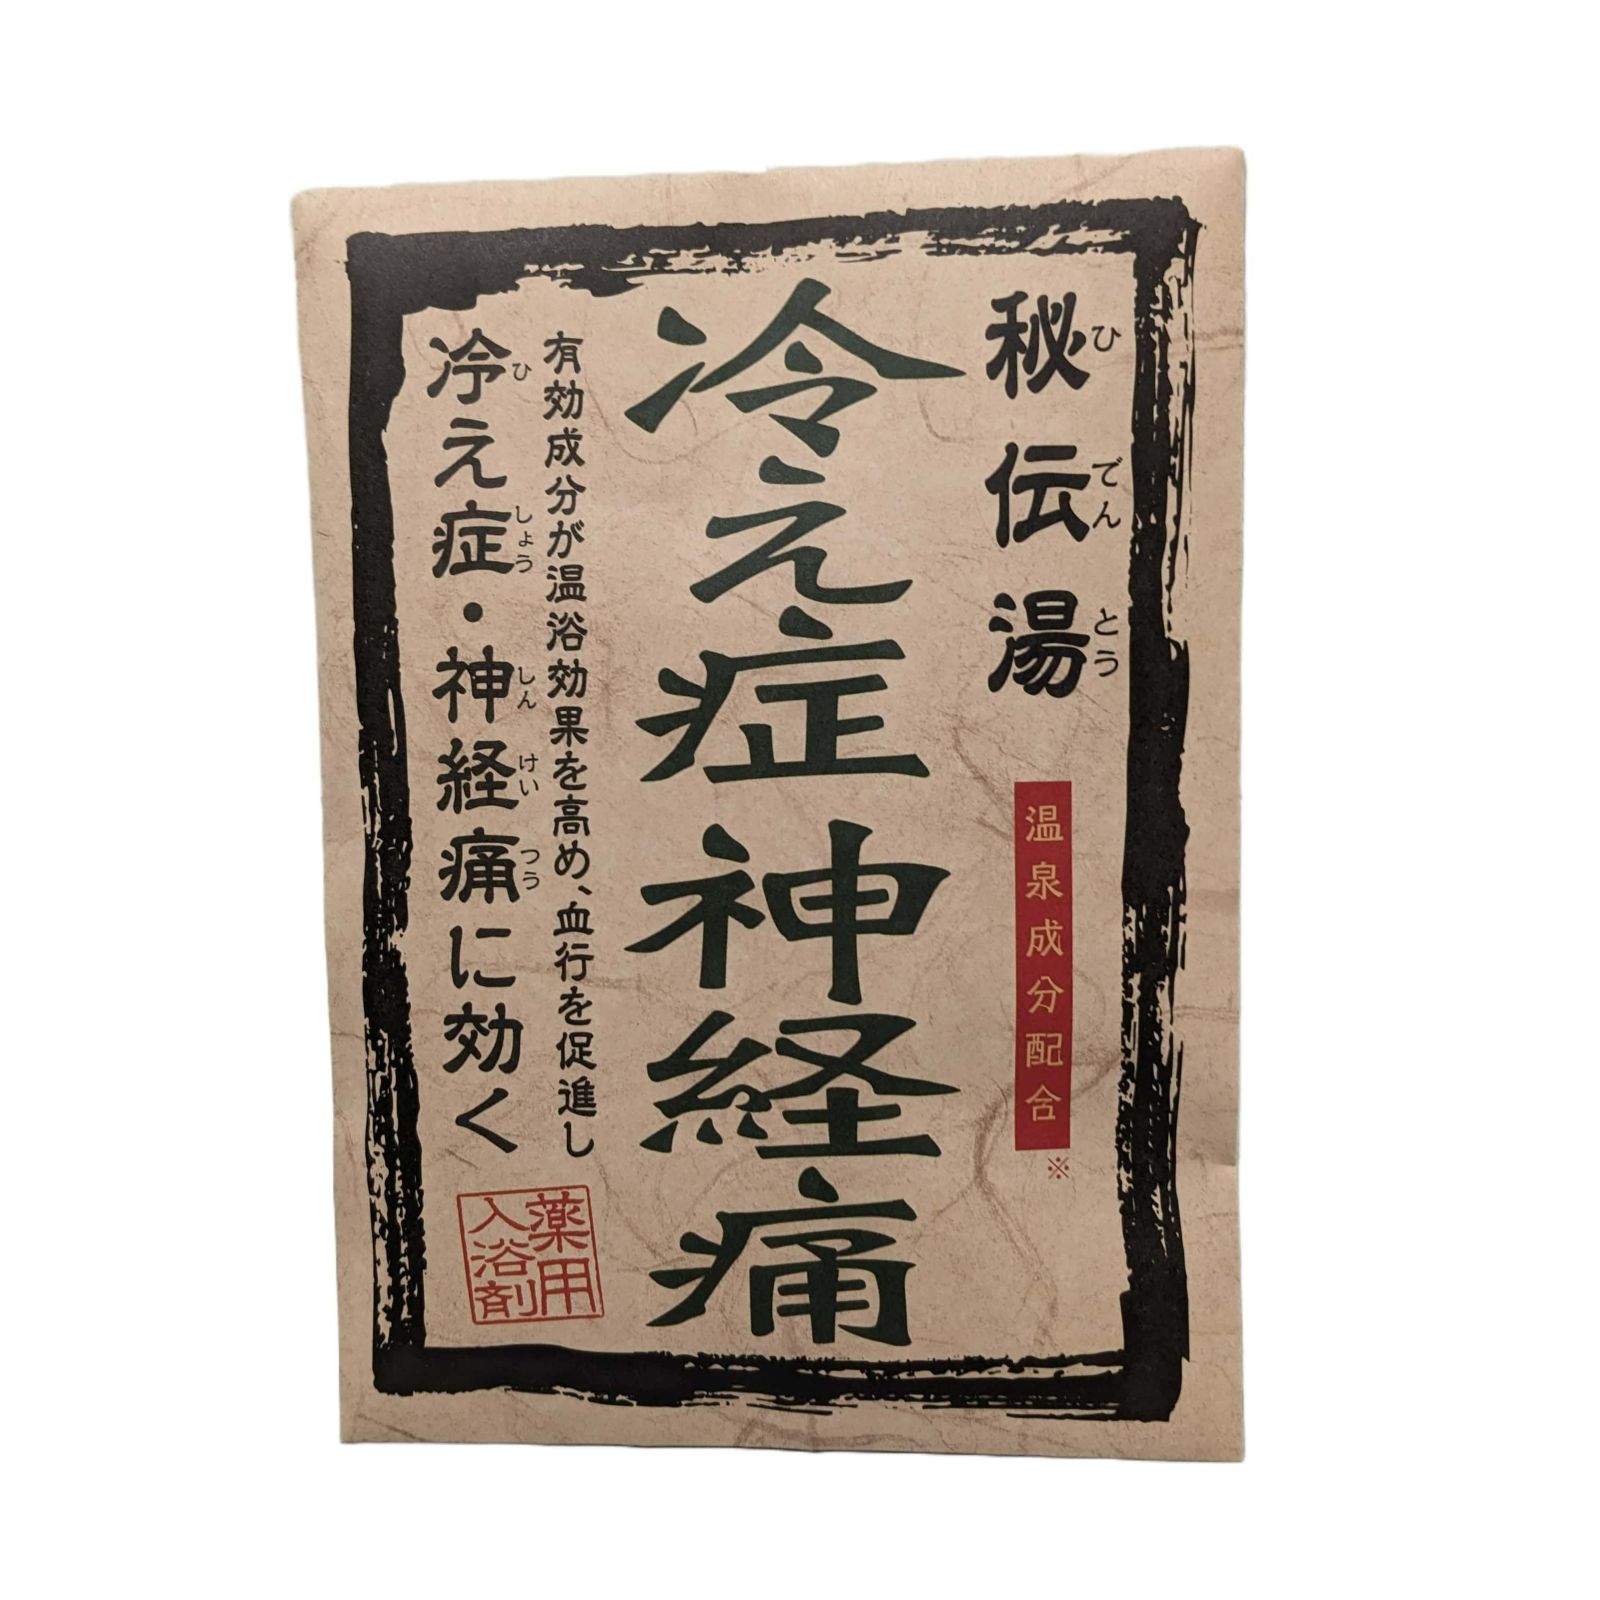 秘伝湯
ひでんとう
温泉成分配合
※
冷え症
神経痛
有効成分が温浴効果を高め、血行を促進し
冷え症・神経痛に効く
ひしょうしんけいつう
薬用
入浴剤